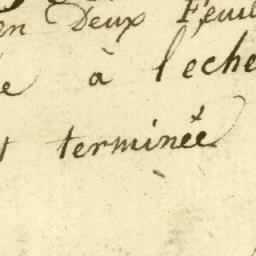 en Deux Feuil
e à l'eche
t terminée